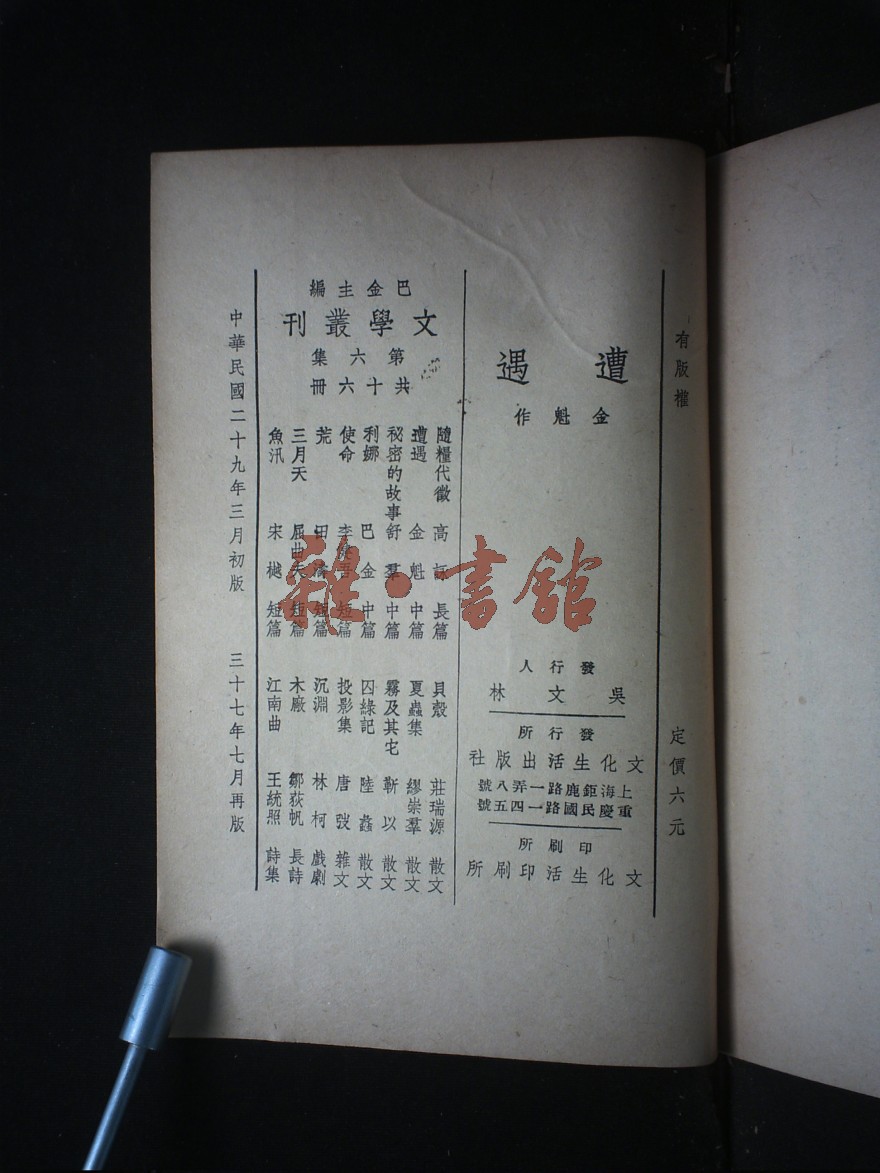 有版權
定價六元
遭遇
金魁作
發行人
吳文林
發行所
文化生活出版社
上海鉅鹿路一弄八號
重慶民國路一四五號
印刷所
文化生活印刷所
巴金主編
文學叢刊
第六集
共十六冊
隨糧代徵 高詠 長篇
遭遇 金魁 中篇
秘密的故事 舒羣 中篇
利娜 巴金 中篇
使命 李健吾 短篇
荒 田濤 短篇
三月天 屈曲夫 短篇
魚汛 宋樾 短篇
貝殼 莊瑞源 散文
夏蟲集 繆崇羣 散文
霧及其它 靳以 散文
囚綠記 陸蠡 散文
投影集 唐弢 雜文
沉淵 林柯 戲劇
木廠 鄒荻帆 長詩
江南曲 王統照 詩集
中華民國二十九年三月初版 三十七年七月再版
雜·書館